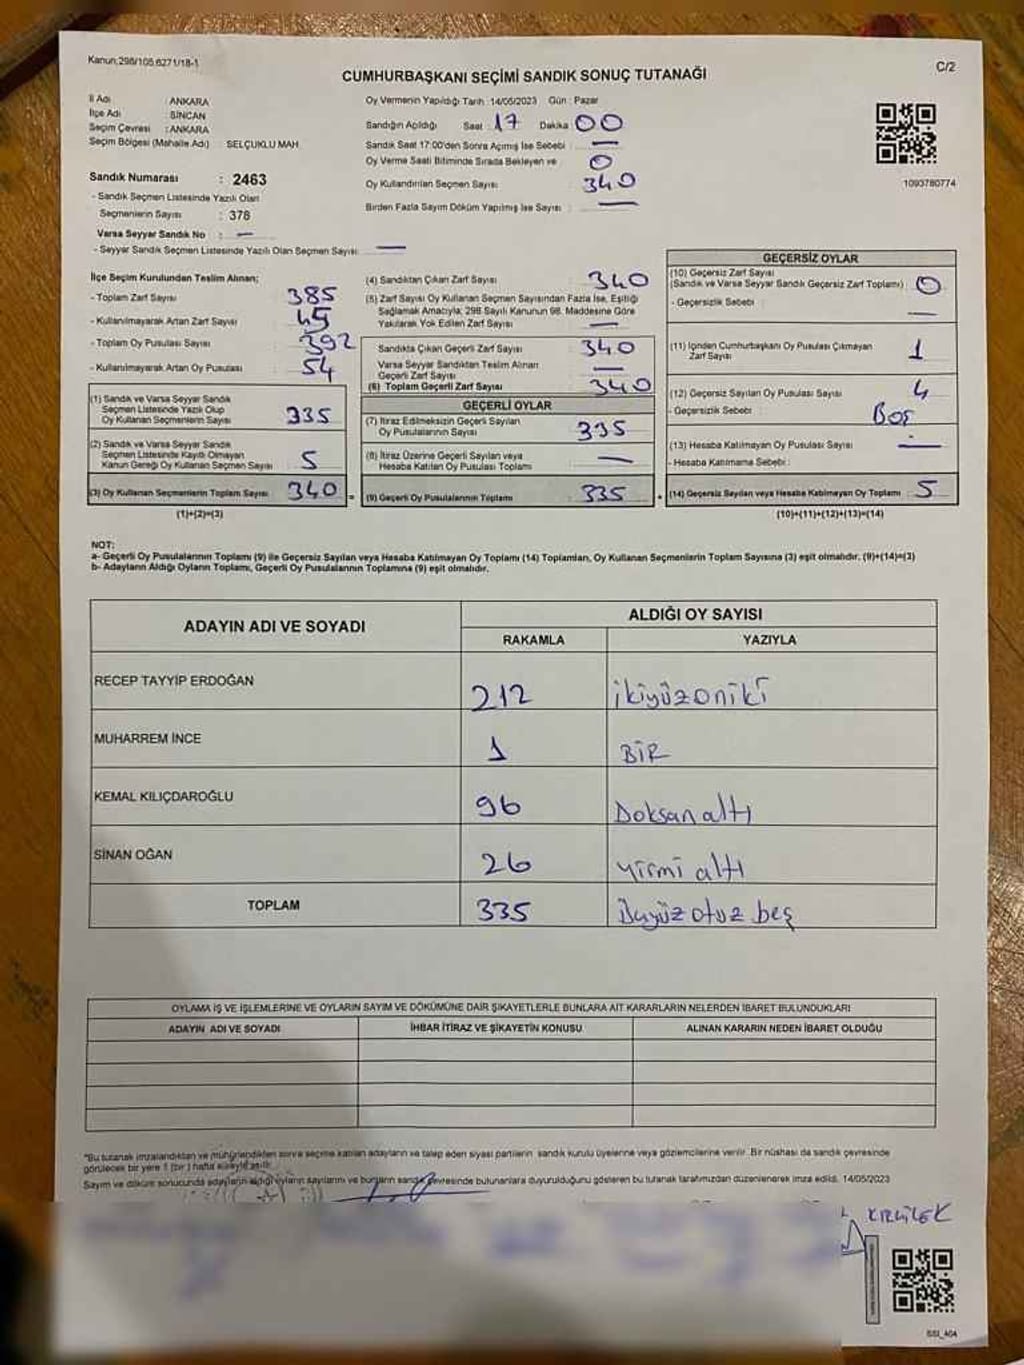 Kanun;298/105,6271/18-1
C/2
CUMHURBAŞKANI SEÇİMİ SANDIK SONUÇ TUTANAĞI
İl Adı : ANKARA
İlçe Adı : SİNCAN
Seçim Çevresi : ANKARA
Seçim Bölgesi (Mahalle Adı) : SELÇUKLU MAH.
Sandık Numarası : 2463
- Sandık Seçmen Listesinde Yazılı Olan
Seçmenlerin Sayısı : 378
Varsa Seyyar Sandık No : —
- Seyyar Sandık Seçmen Listesinde Yazılı Olan Seçmen Sayısı: —
Oy Vermenin Yapıldığı Tarih : 14/05/2023 Gün : Pazar
Sandığın Açıldığı Saat : 17 Dakika : 00
Sandık Saat 17:00'den Sonra Açımış İse Sebebi : —
Oy Verme Saati Bitiminde Sırada Bekleyen ve : 0
Oy Kullandırılan Seçmen Sayısı : 340
Birden Fazla Sayım Döküm Yapılmış İse Sayısı : —
1093780774
İlçe Seçim Kurulundan Teslim Alınan;
- Toplam Zarf Sayısı : 385
- Kullanılmayarak Artan Zarf Sayısı : 45
- Toplam Oy Pusulası Sayısı : 392
- Kullanılmayarak Artan Oy Pusulası : 54
(1) Sandık ve Varsa Seyyar Sandık
Seçmen Listesinde Yazılı Olup
Oy Kullanan Seçmenlerin Sayısı : 335
(2) Sandık ve Varsa Seyyar Sandık
Seçmen Listesinde Kayıtlı Olmayan
Kanun Gereği Oy Kullanan Seçmen Sayısı : 5
(3) Oy Kullanan Seçmenlerin Toplam Sayısı : 340 =
(1)+(2)=(3)
(4) Sandıktan Çıkan Zarf Sayısı : 340
(5) Zarf Sayısı Oy Kullanan Seçmen Sayısından Fazla İse, Eşitliği
Sağlamak Amacıyla; 298 Sayılı Kanunun 98. Maddesine Göre
Yakılarak Yok Edilen Zarf Sayısı : —
Sandıkta Çıkan Geçerli Zarf Sayısı : 340
Varsa Seyyar Sandıktan Teslim Alınan
Geçerli Zarf Sayısı : —
(6) Toplam Geçerli Zarf Sayısı : 340
GEÇERLİ OYLAR
(7) İtiraz Edilmeksizin Geçerli Sayılan
Oy Pusulalarının Sayısı : 335
(8) İtiraz Üzerine Geçerli Sayılan veya
Hesaba Katılan Oy Pusulası Toplamı : —
(9) Geçerli Oy Pusulalarının Toplamı : 335 +
GEÇERSİZ OYLAR
(10) Geçersiz Zarf Sayısı
(Sandık ve Varsa Seyyar Sandık Geçersiz Zarf Toplamı) : 0
- Geçersizlik Sebebi : —
(11) İçinden Cumhurbaşkanı Oy Pusulası Çıkmayan
Zarf Sayısı : 1
(12) Geçersiz Sayılan Oy Pusulası Sayısı : 4
- Geçersizlik Sebebi : Boş
(13) Hesaba Katılmayan Oy Pusulası Sayısı : —
- Hesaba Katılmama Sebebi :
(14) Geçersiz Sayılan veya Hesaba Katılmayan Oy Toplamı : 5
(10)+(11)+(12)+(13)=(14)
NOT:
a- Geçerli Oy Pusulalarının Toplamı (9) ile Geçersiz Sayılan veya Hesaba Katılmayan Oy Toplamı (14) Toplamları, Oy Kullanan Seçmenlerin Toplam Sayısına (3) eşit olmalıdır. (9)+(14)=(3)
b- Adayların Aldığı Oyların Toplamı, Geçerli Oy Pusulalarının Toplamına (9) eşit olmalıdır.
ADAYIN ADI VE SOYADI
ALDIĞI OY SAYISI
RAKAMLA YAZIYLA
RECEP TAYYİP ERDOĞAN 212 ikiyüzoniki
MUHARREM İNCE 1 BİR
KEMAL KILIÇDAROĞLU 96 Doksan altı
SİNAN OĞAN 26 yirmi altı
TOPLAM 335 Üçyüz otuz beş
OYLAMA İŞ VE İŞLEMLERİNE VE OYLARIN SAYIM VE DÖKÜMÜNE DAİR ŞİKAYETLERLE BUNLARA AİT KARARLARIN NELERDEN İBARET BULUNDUKLARI
ADAYIN ADI VE SOYADI İHBAR İTİRAZ VE ŞİKAYETİN KONUSU ALINAN KARARIN NEDEN İBARET OLDUĞU
*Bu tutanak imzalandıktan ve mühürlendikten sonra seçime katılan adayların ve talep eden siyasi partilerin sandık kurulu üyelerine veya gözlemcilerine verilir. Bir nüshası da sandık çevresinde
görülecek bir yere 1 (bir ) hafta süreyle asılır.
Sayım ve döküm sonucunda adayların aldığı oyların sayılarını ve bunların sandık çevresinde bulunanlara duyurulduğunu gösteren bu tutanak tarafımızdan düzenlenerek imza edildi. 14/05/2023
SSI_404